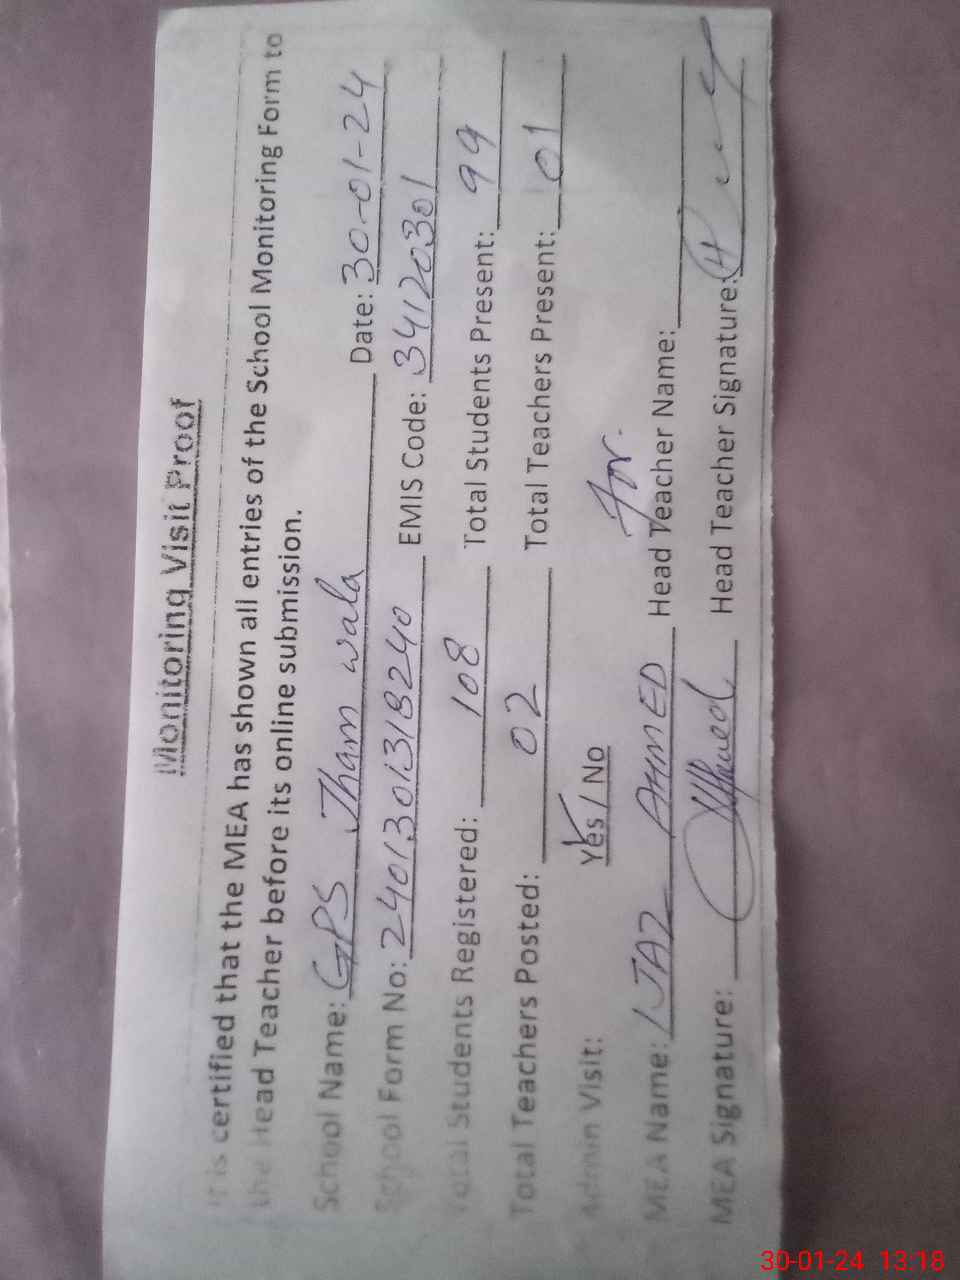 Monitoring Visit Proof
It is certified that the MEA has shown all entries of the School Monitoring Form to
the Head Teacher before its online submission.
School Name: GPS Tham wala Date: 30-01-24
School Form No: 2401301318240 EMIS Code: 34120301
Total Students Registered: 108 Total Students Present: 99
Total Teachers Posted: 02 Total Teachers Present: 01
Admin Visit: Yes / No
For.
MEA Name: IJAZ AHMED Head Teacher Name:
MEA Signature: Head Teacher Signature:
30-01-24 13:18